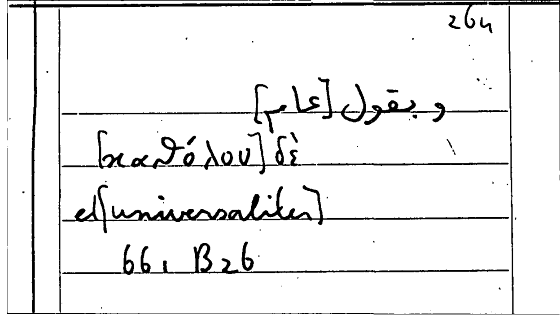 264
وبقول [عام]
[καθόλου] δὲ
et [universaliter]
66, B26